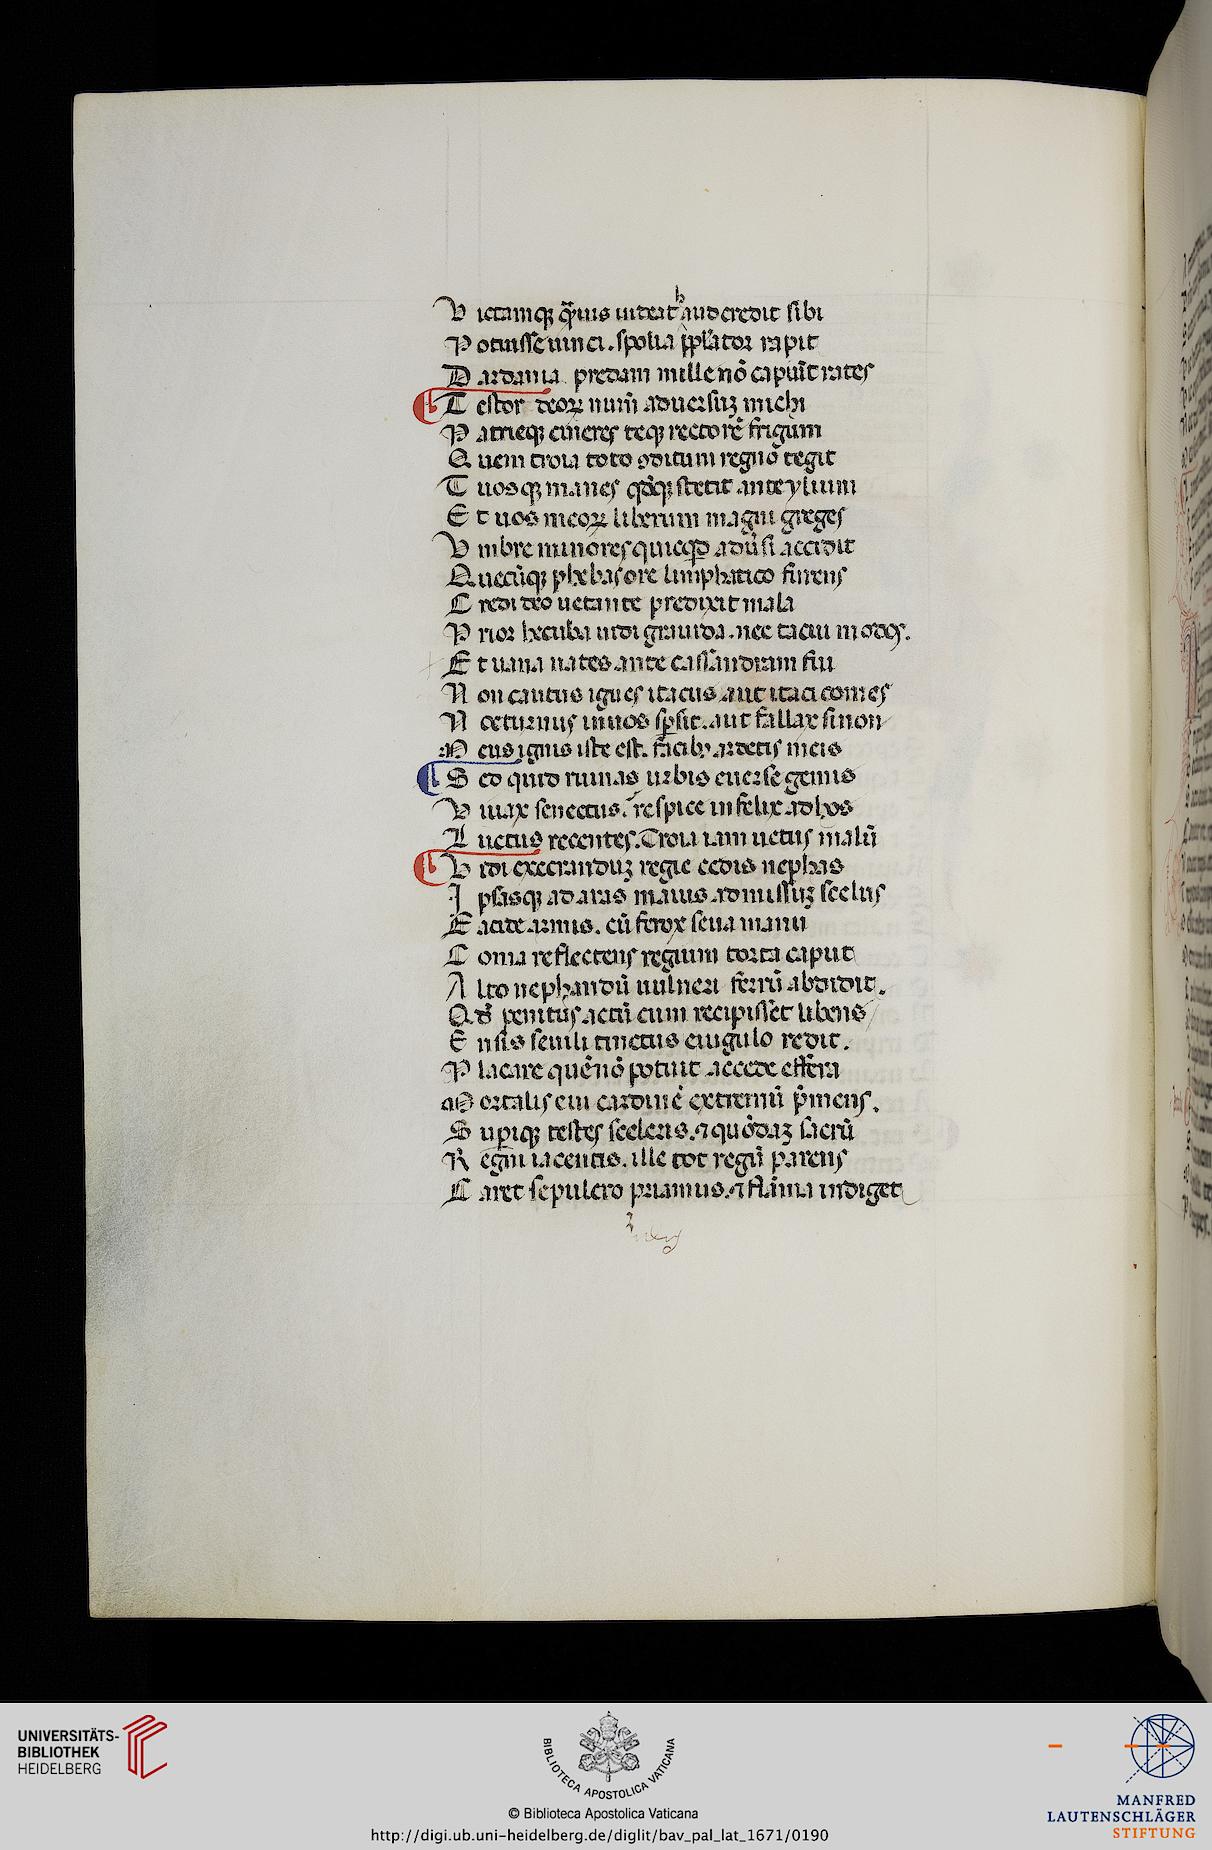 Victamq̨ q̃uis uideat haud credit sibi
Potuisse uinci. spolia pp̱lator rapit
Dardania. predam mille nō capiūt rates
Testor deoꝝ numē aduersuꝫ michi
Patrieq̨ cineres teq̨ rectorē frigum
Quem troia toto ꝯditum regno tegit
Tuosq̨ manes quōq̨ stetit ante ylium
Et uos meoꝝ liberum magni greges
Vmbre minores quicq̄d aduersi accidit
Quecūq̨ phebas ore limphatico furens
Credi deo uetante predixit mala
Prior hecuba uidi grauida. nec tacui
Et uana uates ante cassandram fui
Non cautus ignes itacus aut itaci comes
Nocturnus in uos sp̱sit. aut fallax sinon
Meus ignis iste est. facibꝫ ardetis meis
Sed quid ruinas urbis euerse gemis
Viuax senectus. respice infelix ad hos
Luctus recentes. Troia iam uetus malū
Vidi execranduꝫ regie cedis nephas
Ipsasq̨ ad aras maius admissuꝫ scelus
Eacide armis. cū ferox seua manu
Coma reflectens regium torta caput
Alto nephandū uulneri ferrū abdidit.
Qd̄ penitus actū cum recipisset libens
Ensis senili tinctus e iugulo redit.
Placare quē nō potuit a cede effera
Mortalis eui cardinē extremū p̄mens.
Supiq̨ testes sceleris. ⁊ quōdaꝫ sacrū
Regni iacentis. ille tot regū parens
Caret sepulcro priamus. ⁊ flāma indiget
UNIVERSITÄTS-
BIBLIOTHEK
HEIDELBERG
BIBLIOTECA APOSTOLICA VATICANA
© Biblioteca Apostolica Vaticana
http://digi.ub.uni-heidelberg.de/diglit/bav_pal_lat_1671/0190
MANFRED
LAUTENSCHLÄGER
STIFTUNG